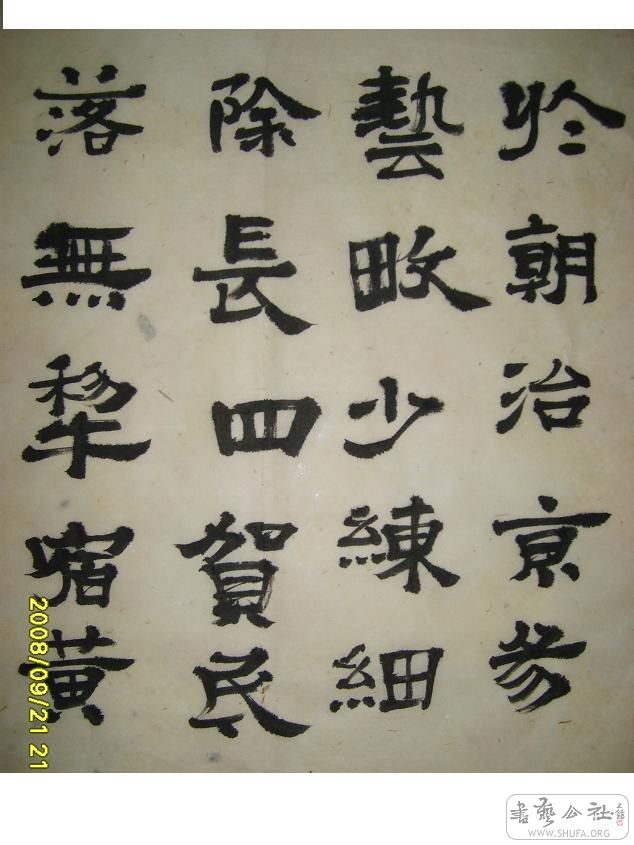 於朝治京參
藝畋少練細
除長四賀民
落無犂宿黃
2008/09/21 21
書藝公社
WWW.SHUFA.ORG